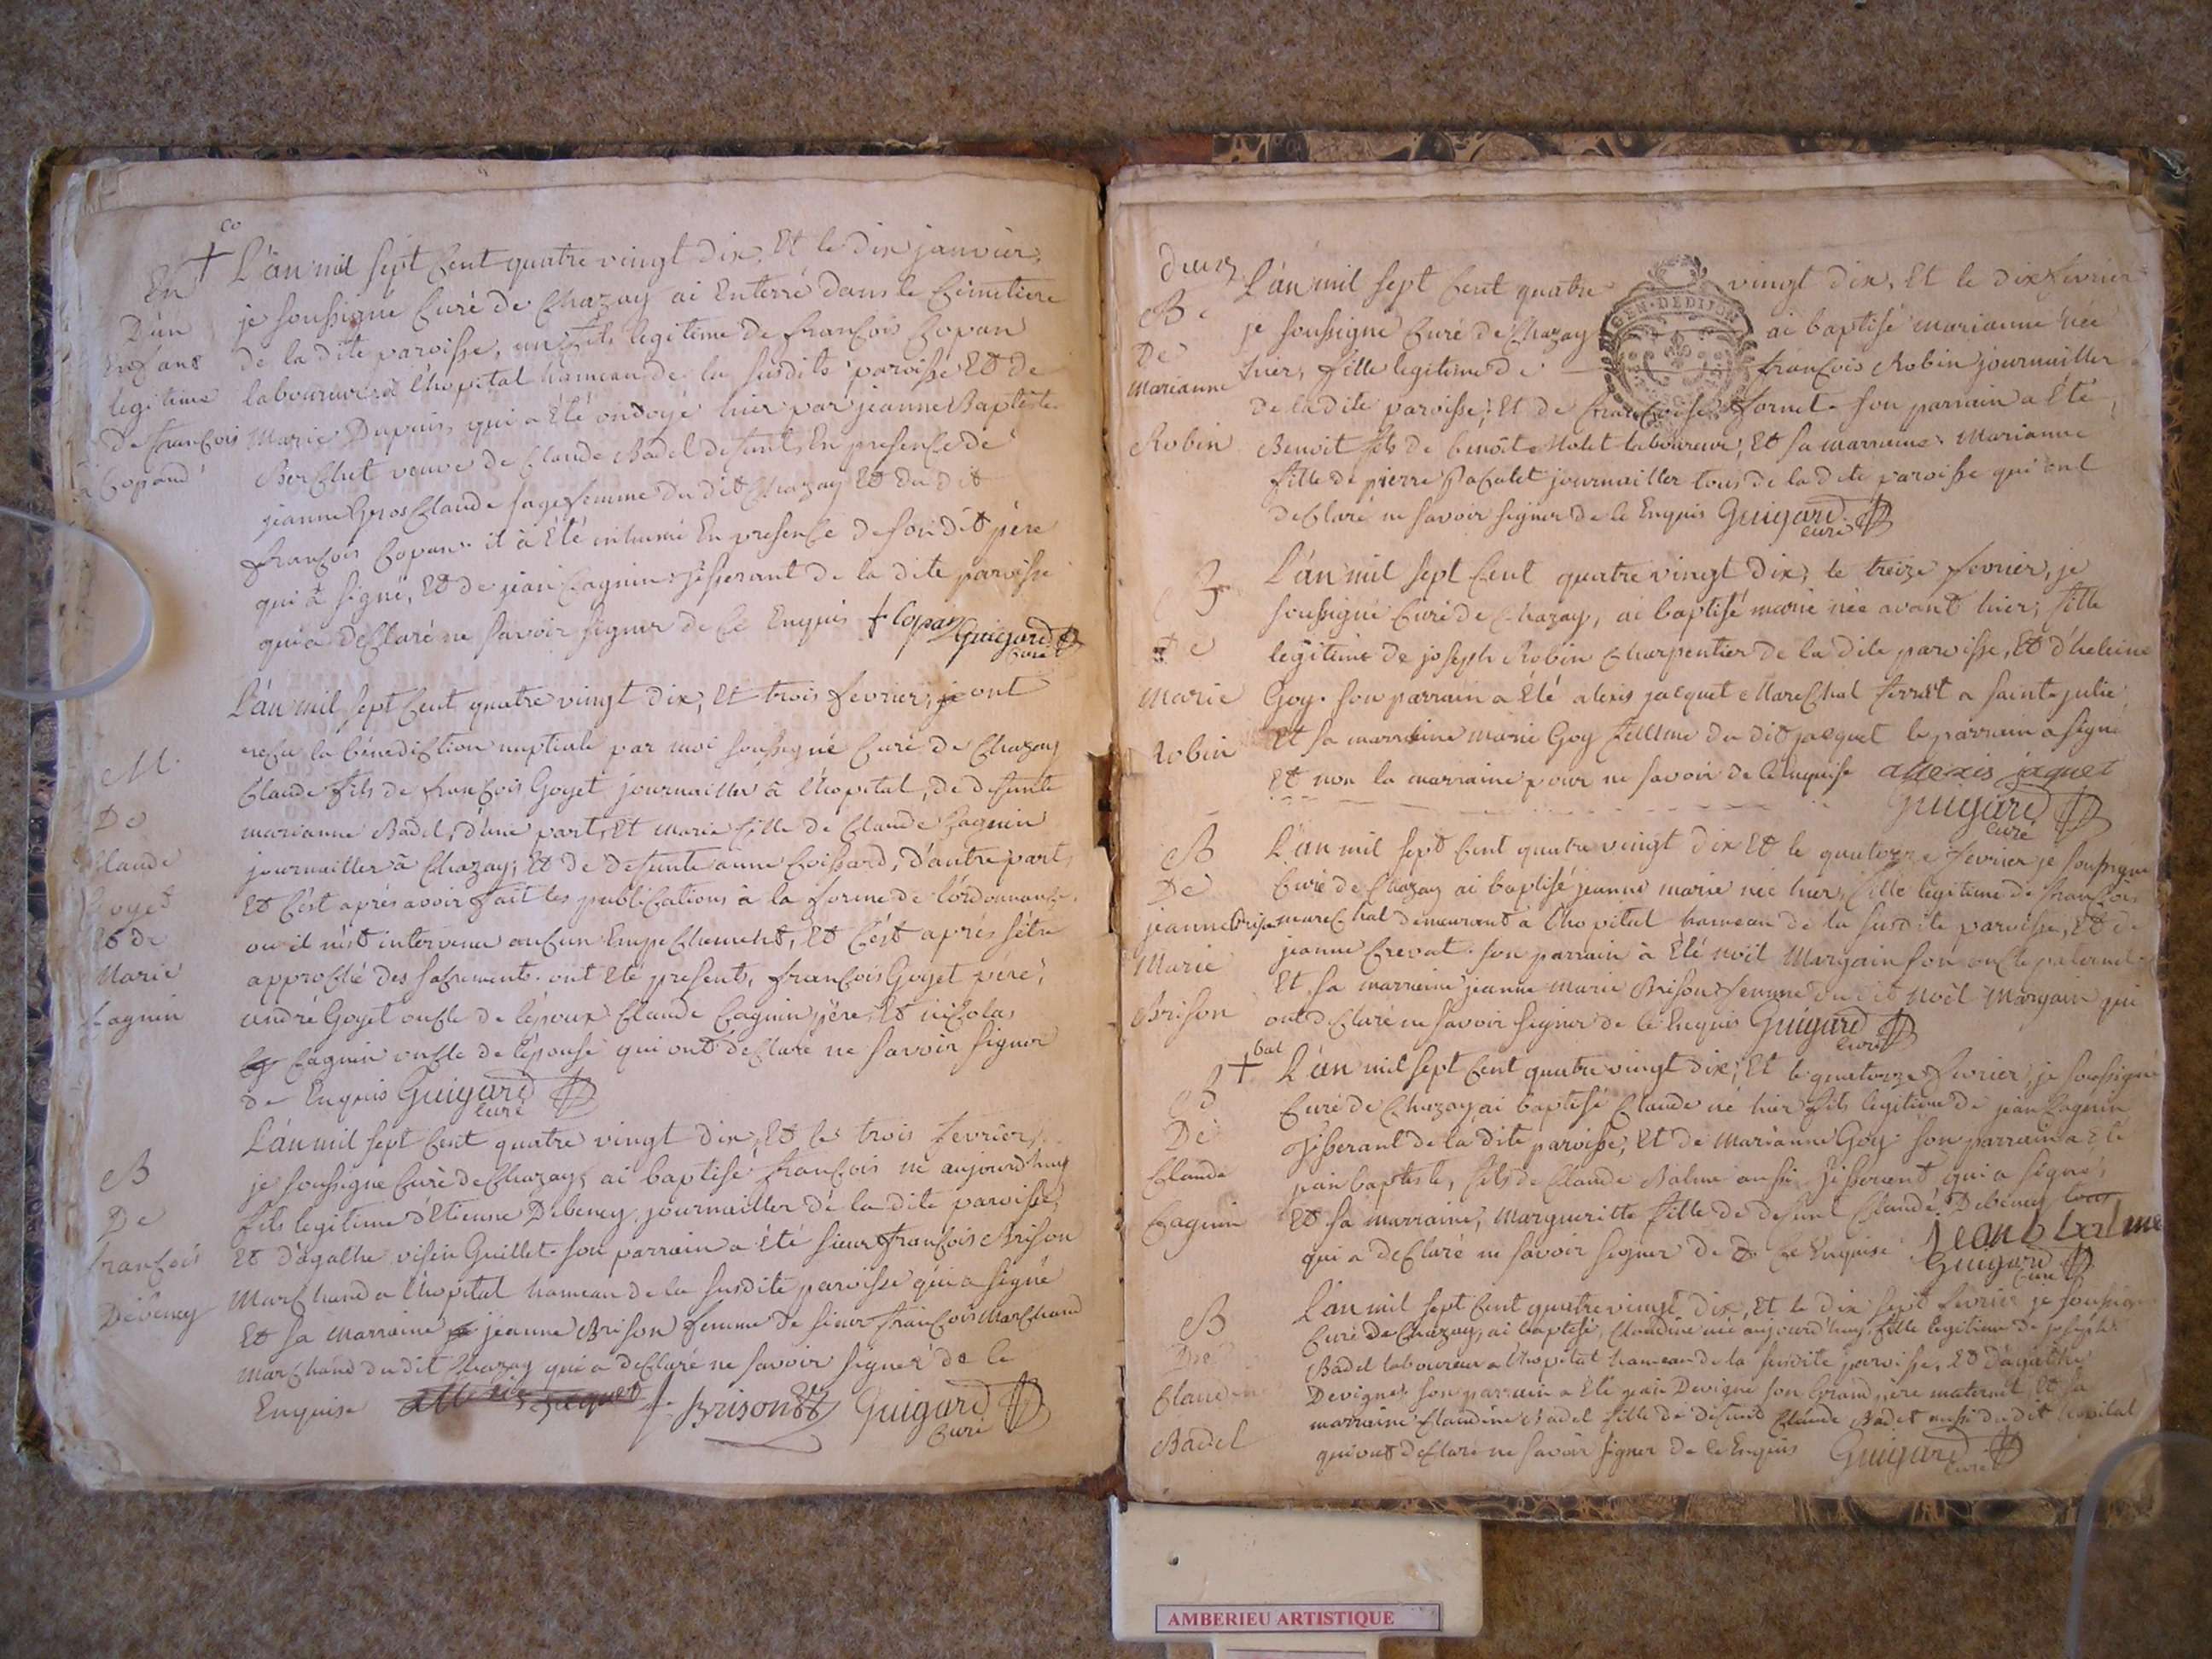 co
En + L'an mil sept Cent quatre vingt dix, Et le dix janvier,
D'un je soussigné Curé de Chazay ai Enterré dans le Cimetiere
Enfant de la dite paroisse, un fils legitime de françois Copan
legitime laboureur à l'hopital hameau de la susdite paroisse Et de
De françois Marie Dupuis, qui a Été ondoyé hier par jeanne Baptiste
Copand Berchet veuve de Claude Badel defunt, En presence de
jeanne Gros Claude sage femme du dit Chazay Et du dit
françois Copan. il à Été inhumé En presence de son dit père
qui a signé, Et de jean Cagnin tisserant de la dite paroisse
qui a declaré ne savoir signer de Ce Enquis f Copan Guigard
Curé
L'an mil sept Cent quatre vingt dix, Et trois fevrier, je ont
recu la bénediction nuptiale par moi soussigné Curé de Chazay
M. Claude fils de françois Goyet journaillier à l'hopital, de defunte
De marianne Badel, d'une part, Et marie fille de Claude Cagnin
Claude journaillier à Chazay; Et de defunte anne Coissard, d'autre part,
Goyet Et C'est aprés avoir fait les publications à la forme de l'ordonnance,
Et de ou il n'est intervenu aucun Empechement, Et C'est aprés s'étre
Marie approché des sacrements. ont Eté presents, françois Goyet pére,
Cagnin andré Goyet oncle de l'époux Claude Cagnin pére, Et nicolas
Cagnin oncle de l'épouse qui ont declaré ne savoir signer
de Enquis Guigard
Curé
L'an mil sept Cent quatre vingt dix, Et le trois fevrier,
B je soussigné Curé de Chazay, ai baptisé françois né aujourd'huy
De fils legitime d'Etienne Debeney journaillier de la dite paroisse,
françois Et d'agathe visin Guillet. son parrain a été sieur françois Brison
Debeney Marchand a l'hopital hameau de la susdite paroisse qui a signé
Et sa marraine jeanne Brison femme de sieur françois Marchand
marchand du dit Chazay qui a declaré ne savoir signer de ce
Enquise allexis jaquet f. Brison Guigard
Curé
deux
L'an mil sept Cent quatre vingt dix, Et le dix fevrier
GEN. DE DIJON
B je soussigné Curé de Chazay ai baptisé marianne née
De hier, fille legitime de françois Robin journaillier
Marianne de la dite paroisse; Et de françoise fornet. son parrain a Eté,
Robin Benoit fils de benoit Molet laboureur, Et sa marraine Marianne
fille de pierre Pacalet journaillier tous de la dite paroisse qui ont
declaré ne savoir signer de ce Enquis Guigard
Curé
B L'an mil sept Cent quatre vingt dix, le treize fevrier, je
soussigné Curé de Chazay, ai baptisé marie née avant hier, fille
De legitime de joseph Robin Charpentier de la dite paroisse, Et d'heleine
Marie Goy. son parrain a Été alexis jacquet Marechal ferrant a sainte julie,
Robin Et sa marraine marie Goy femme du dit jacquet le parrain a signé
Et non la marraine pour ne savoir de ce Enquise allexis jaquet
Guigard
Curé
B L'an mil sept Cent quatre vingt dix Et le quatorze fevrier je soussigné
De Curé de Chazay ai baptisé jeanne marie née hier, fille legitime de françois
jeanne Brison marechal demeurant à l'hopital hameau de la susdite paroisse, Et de
Marie jeanne Crevat. son parrain à Eté noël Margain son oncle paternel
Et sa marraine jeanne marie Brison femme du dit noël Margain qui
Brison ont declaré ne savoir signer de ce Enquis Guigard
Curé
+ bal L'an mil sept Cent quatre vingt dix; Et le quatorze fevrier, je soussigné
B Curé de Chazay, ai baptisé Claude né hier fils legitime de jean Cagnin
De tisserant de la dite paroisse, Et de marianne Goy. son parrain a Eté
Claude jean baptiste, fils de Claude Balme aussi tisserant qui a signé,
Cagnin Et sa marraine, Marguerite fille de defunt Claude Debeney
qui a declaré ne savoir signer de ce Enquise Jean b balme
Guigard
Curé
L'an mil sept Cent quatre vingt dix, Et le dix sept fevrier je soussigné
B Curé de Chazay, ai baptisé, Claudine née aujourd'huy fille legitime de joseph
De Badel laboureur a l'hopital hameau de la susdite paroisse, Et d'agathe
Claudine Devigne. son parrain a Eté jean Devigne son Grand père maternel, Et sa
marraine Claudine Badel fille de defunt Claude Badel aussi du dit hopital
Badel qui ont declaré ne savoir signer de ce Enquis Guigard
Curé
AMBERIEU ARTISTIQUE